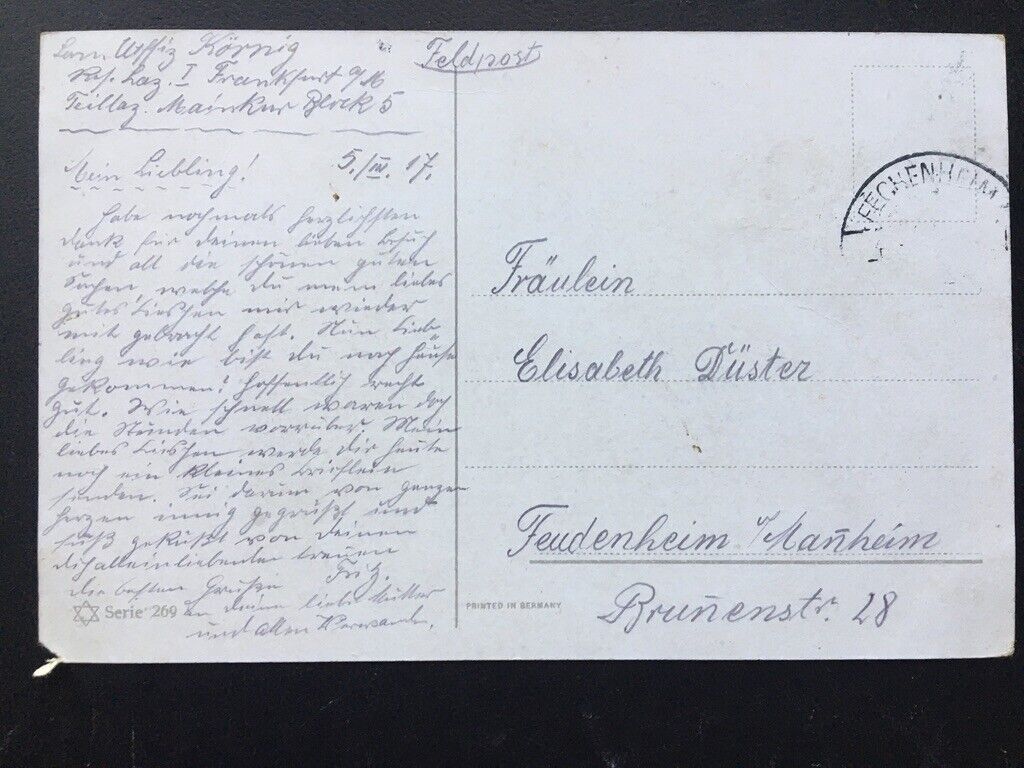 Körnig
Res. Laz. I Frankfurt a/M
Teillaz. Mainkur Block 5
Mein Liebling! 5./III. 17.
Habe nochmals herzlichsten
dank für deinen lieben besuch
und all die schönen guten
Sachen, welche du mein liebes
gutes Lieschen mir wieder
mit gebracht hast. Nun Lieb
ling wie bist du nach hause
gekommen? hoffentlich recht
gut. Wie schnell waren doch
die Stunden vorrüber. Mein
liebes Lieschen werde dir heute
noch ein kleines brieflein
senden. Sei darum von ganzen
herzen innig gegrüßt und
süß geküßt von deinen
dich alleinliebenden treuen
Fritz.
die besten Grüße
an deine liebe Mutter
und allen Verwanden.
Serie 269
Feldpost
FECHENHEIM
Fräulein
Elisabeth Düster
Feudenheim b/Man̄heim
Brun̄enstr. 28
PRINTED IN GERMANY